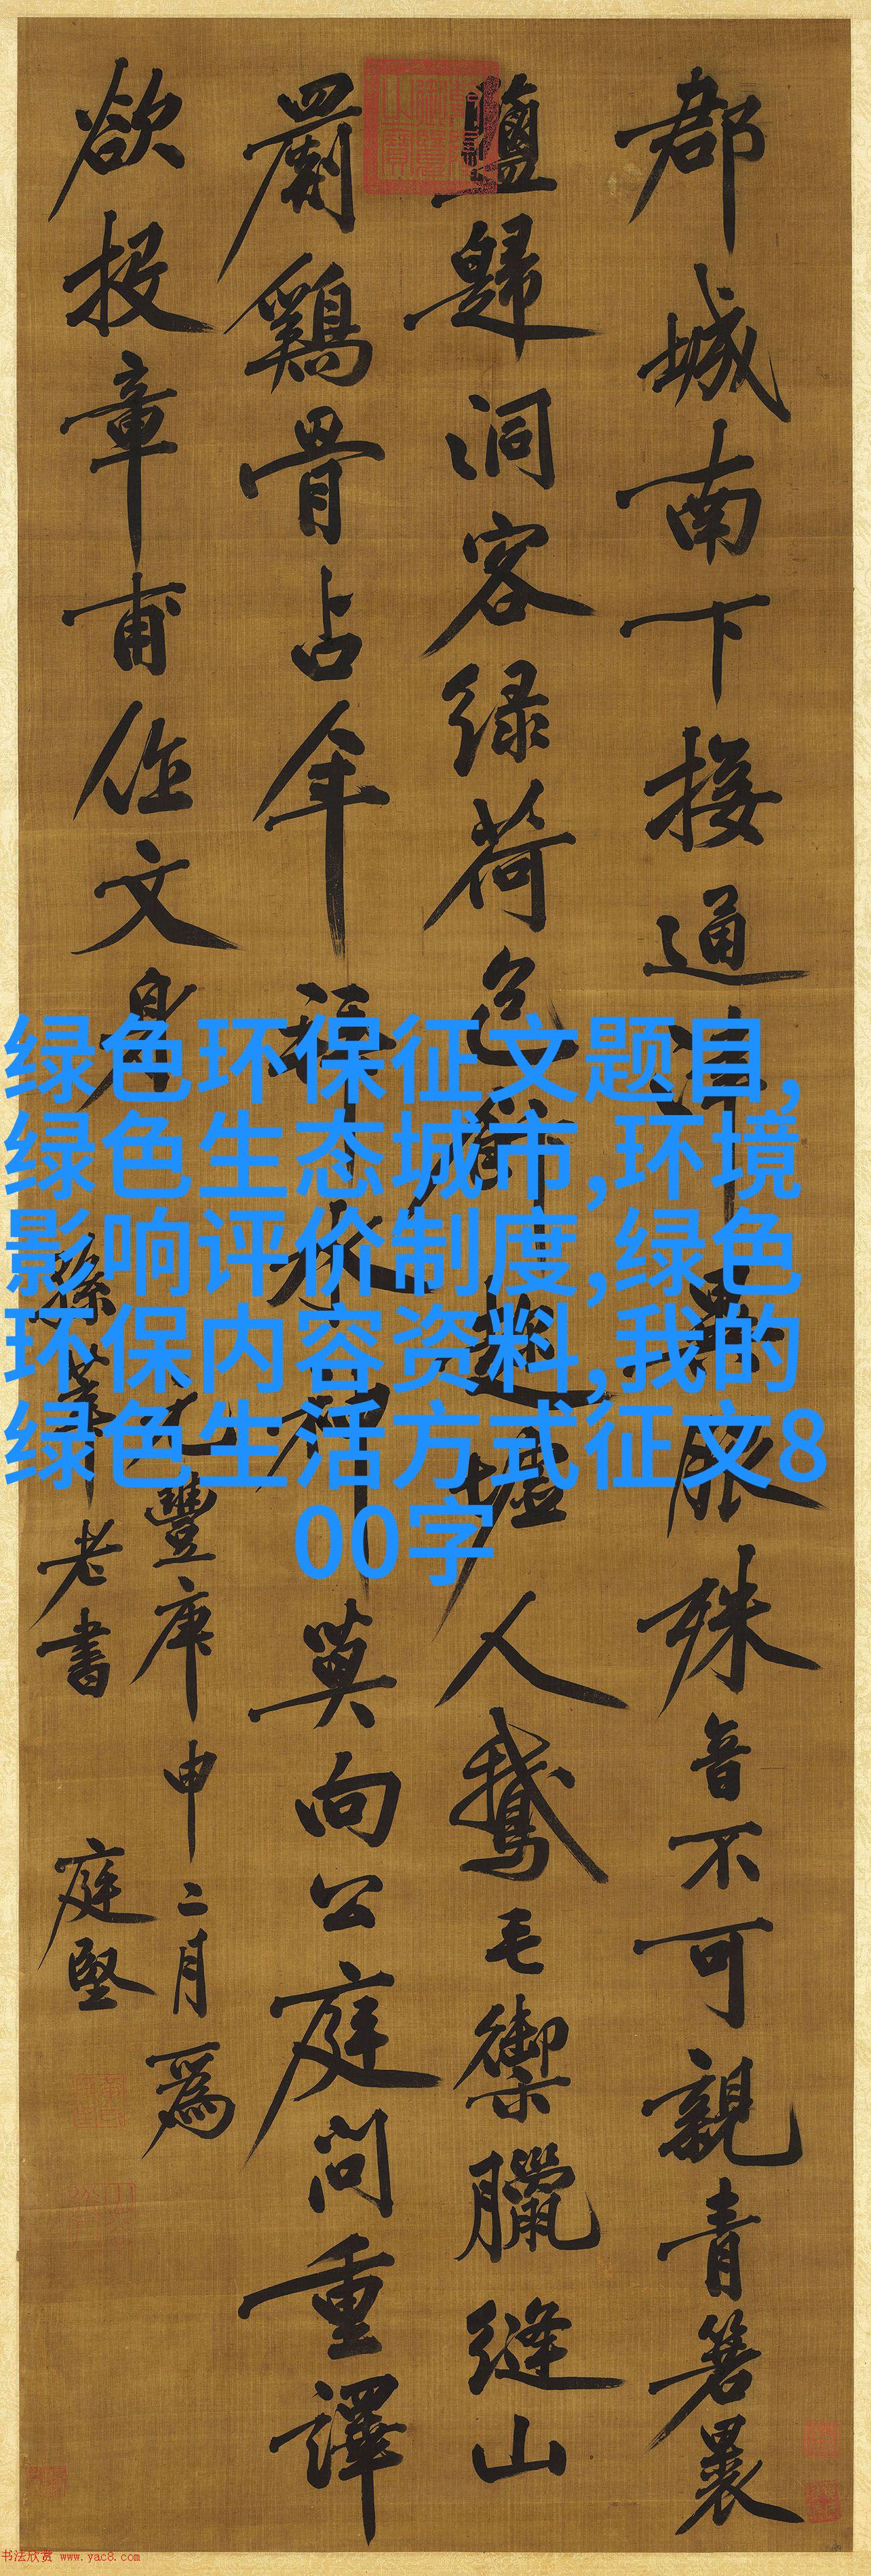 郡城南下接通津異服殊音不可親青箬裹
鹽歸洞客緑荷包飯趁墟人鵝毛御臘縫山
罽鷄骨占年拜水神莫向公庭問重譯
欲投章甫作文身
元豐庚申二月爲
孫莘老書 庭堅
绿色环保征文题目,
绿色生态城市,环境
影响评价制度,绿色
环保内容资料,我的
绿色生活方式征文8
00字
书法欣赏 www.yac8.com